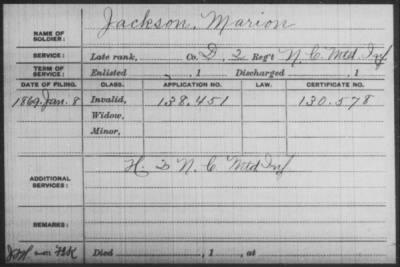 NAME OF SOLDIER: Jackson, Marion
SERVICE: Late rank, Co. D, 2 Reg't N. C. Mtd Inf
TERM OF SERVICE: Enlisted , 1 Discharged , 1
DATE OF FILING. CLASS. APPLICATION NO. LAW. CERTIFICATE NO.
1869, Jan. 8 Invalid, 138.451 130.578
Widow,
Minor,
ADDITIONAL SERVICES: H. 3 N. C. Mtd Inf
REMARKS:
Died , 1 , at